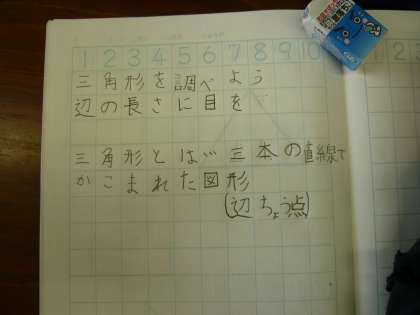 1 2 3 4 5 6 7 8 9 10
三角形を調べよう
辺の長さに目を
三角形とは…三本の直線で
かこまれた図形
(辺ちょう点)